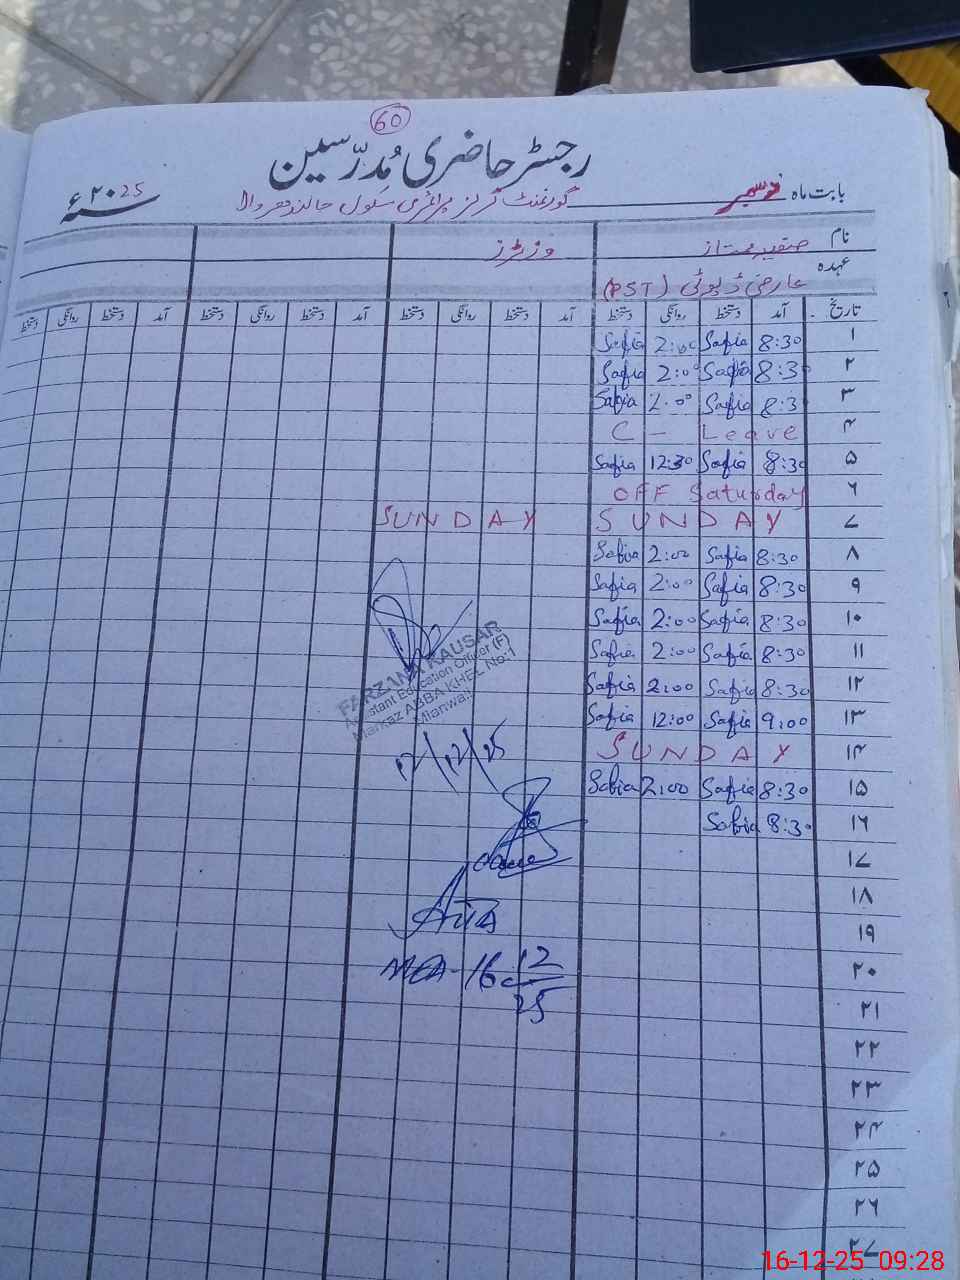 60
رجسٹر حاضری مُدرّسین
بابت ماہ دسمبر گورنمنٹ گرلز پرائمری سکول ۲۰25ء
نام صفیہ ممتاز وزیٹرز
عہدہ عارضی ڈیوٹی (PST)
تاریخ آمد دستخط روانگی دستخط آمد دستخط روانگی دستخط آمد دستخط روانگی دستخط دستخط روانگی دستخط
۱ 8:30 Safia 2:00 Safia
۲ 8:30 Safia 2:00 Safia
۳ 8:3 Safia 2:00 Safia
۴ C - Leave
۵ 8:30 Safia 12:30 Safia
۶ OFF Saturday
۷ SUNDAY SUNDAY
۸ 8:30 Safia 2:00 Safia
۹ 8:30 Safia 2:00 Safia
۱۰ 8:30 Safia 2:00 Safia
۱۱ 8:30 Safia 2:00 Safia
۱۲ 8:30 Safia 2:00 Safia
۱۳ 9:00 Safia 12:00 Safia
۱۴ SUNDAY
۱۵ 8:30 Safia 2:00 Safia
۱۶ 8:30 Safia
۱۷
۱۸
۱۹
۲۰
۲۱
۲۲
۲۳
۲۴
۲۵
۲۶
۲۷
FARZANA KAUSAR
Assistant Education Officer (F)
Markaz ABBA KHEL No:1
Mianwali
12/12/25
MEA-16-12/25
16-12-25 09:28